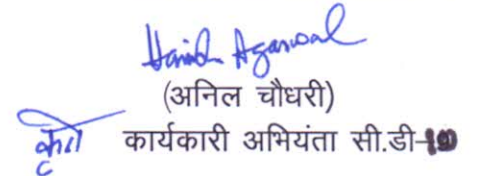 Harish Agarwal
(अनिल चौधरी)
कृते कार्यकारी अभियंता सी.डी-10